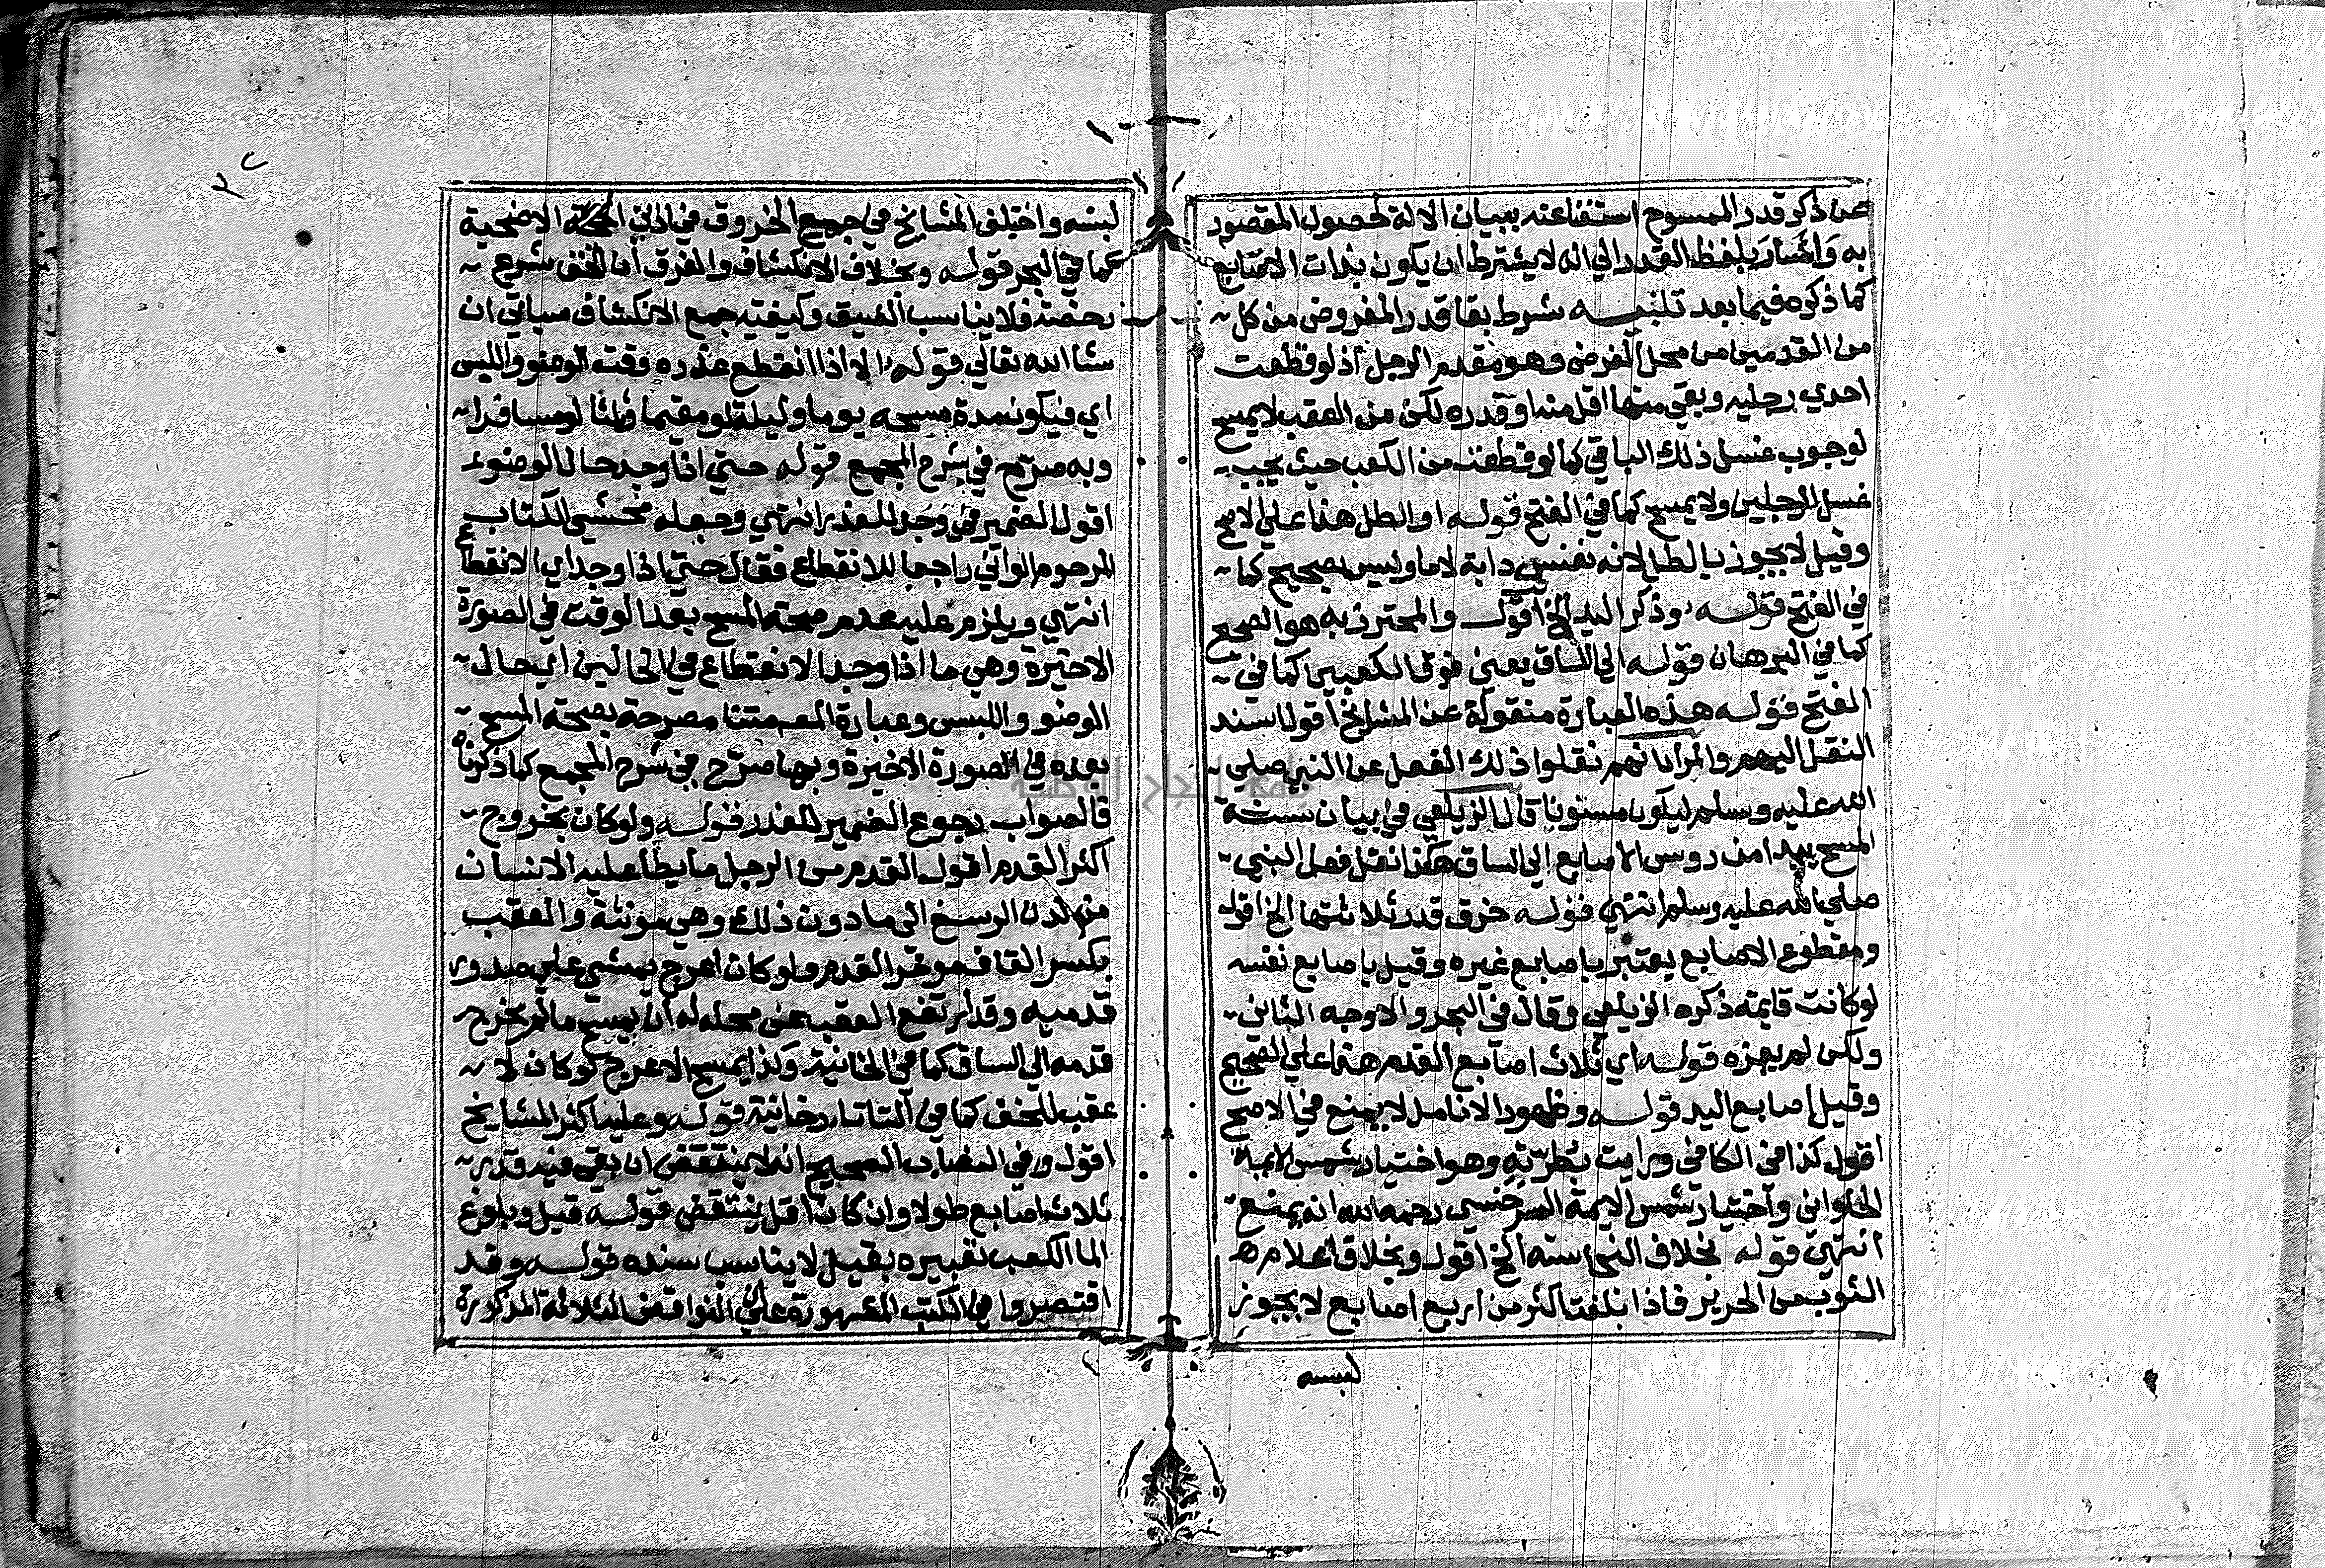 عن ذكر قدر الممسوح استغناعنه ببيان الالة لحصول المقصود
به واشار بلفظ القدر الي انه لا يشترط ان يكون بذات الاصابع
كما ذكره فيما بعد تنبيه شرط بقا قدر المفروض من كل
من القدمين من محل الفرض وهو مقدم الرجل اذ لو قطعت
احدي رجليه وبقي منها اقل منه او قدره لكن من العقب لا يمسح
لوجوب غسل ذلك الباقي كما لو قطعت من الكعب حيث يجب
غسل الرجلين ولا يمسح كما في الفتح قوله او الطل هذا علي الاصح
وقيل لا يجوز بالطل لانه نفس دابة لا ما وليس بصحيح كما
في الفتح قوله وذكر اليد الخ اقول والمحترز به هو الصحيح
كما في البرهان قوله الى الساق يعني فوق الكعبين كما في
الفتح قوله هذه العبارة منقولة عن المشايخ اقول اسند
النقل اليهم والمراد انهم نقلوا ذلك الفعل عن النبي صلي
الله عليه وسلم ليكون مسنونا قال الزيلعي في بيان سنة
المسح يبدا من روس الاصابع الي الساق هكذا نقل فعل النبي
صلي الله عليه وسلم انتهي قوله خرق قدر ثلاثتها الخ اقول
ومقطوع الاصابع يعتبر باصابع غيره وقيل باصابع نفسه
لو كانت قايمة ذكره الزيلعي وقال في البحر والاوجه الثاني
ولكن لم يعزه قوله اي ثلاث اصابع القدم هذا علي الصحيح
وقيل اصابع اليد قوله وظهور الانامل لا يمنع في الاصح
اقول كذا في الكافي ورايت بطرته وهو اختيار شمس الايمة
الحلواني واختيار شمس الايمة السرخسي رحمه الله انه يمنع
انتهي قوله بخلاف النجاسة الخ اقول وبخلاف اعلام
الثوب من الحرير فاذا بلغت اكثر من اربع اصابع لا يجوز
لبسه
لبسه واختلف المشايخ في جميع الخروق في اذني الاضحية
كما في البحر قوله وبخلاف الانكشاف والفرق ان الخف شرع
رخصة فلا يناسب الضيق وكيفية جمع الانكشاف سياتي ان
شا الله تعالي قوله الا اذا انقطع عذره وقت الوضو واللبس
اي فيكون مدة مسحه يوما وليلة لو مقيما وثلثا لو مسافرا
وبه صرح في شرح المجمع قوله حتي اذا وجد حال الوضوء
اقول الضمير في وجد للعذر انتهي وجعله محشي الكتاب
المرحوم الواني راجعا للانقطاع فقال حتي اذا وجد اي الانقطاع
انتهي ويلزم عليه عدم صحة المسح بعد الوقت في الصورة
الاخيرة وهي ما اذا وجد الانقطاع في الحالين اي حال
الوضو واللبس وعبارة المصـ متنا مصرحة بصحة المسح
بعده في الصورة الاخيرة وبها صرح في شرح المجمع كما ذكرناه
فالصواب رجوع الضمير للعذر قوله ولو كان بخروج
اكثر القدم اقول القدم من الرجل ما يطا عليه الانسان
من لدن الرسغ الى ما دون ذلك وهي مونثة والعقب
بكسر القاف موخر القدم ولو كان اعرج يمشي علي صدور
قدميه وقد ارتفع العقب عن محله له ان يمسح ما لم يخرج
قدمه الي الساق كما في الخانية وكذا يمسح الاعرج لو كان لا
عقب للخف كما في التاتارخانية قوله وعليه اكثر المشايخ
اقول وفي النصاب الصحيح انه لا ينتقض ان بقي فيه قدر
ثلاث اصابع طولا وان كان اقل ينتقض قوله قيل وبلوغ
الما الكعب تعبيره بقيل لا يناسب سنده قوله وقد
اقتصروا في الكتب المشهورة علي النواقض الثلاثة المذكورة